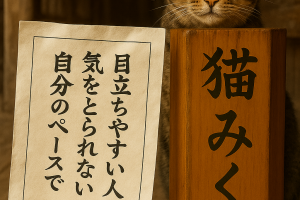 目立ちやすい人
気をとられない
自分のペースで
猫みく